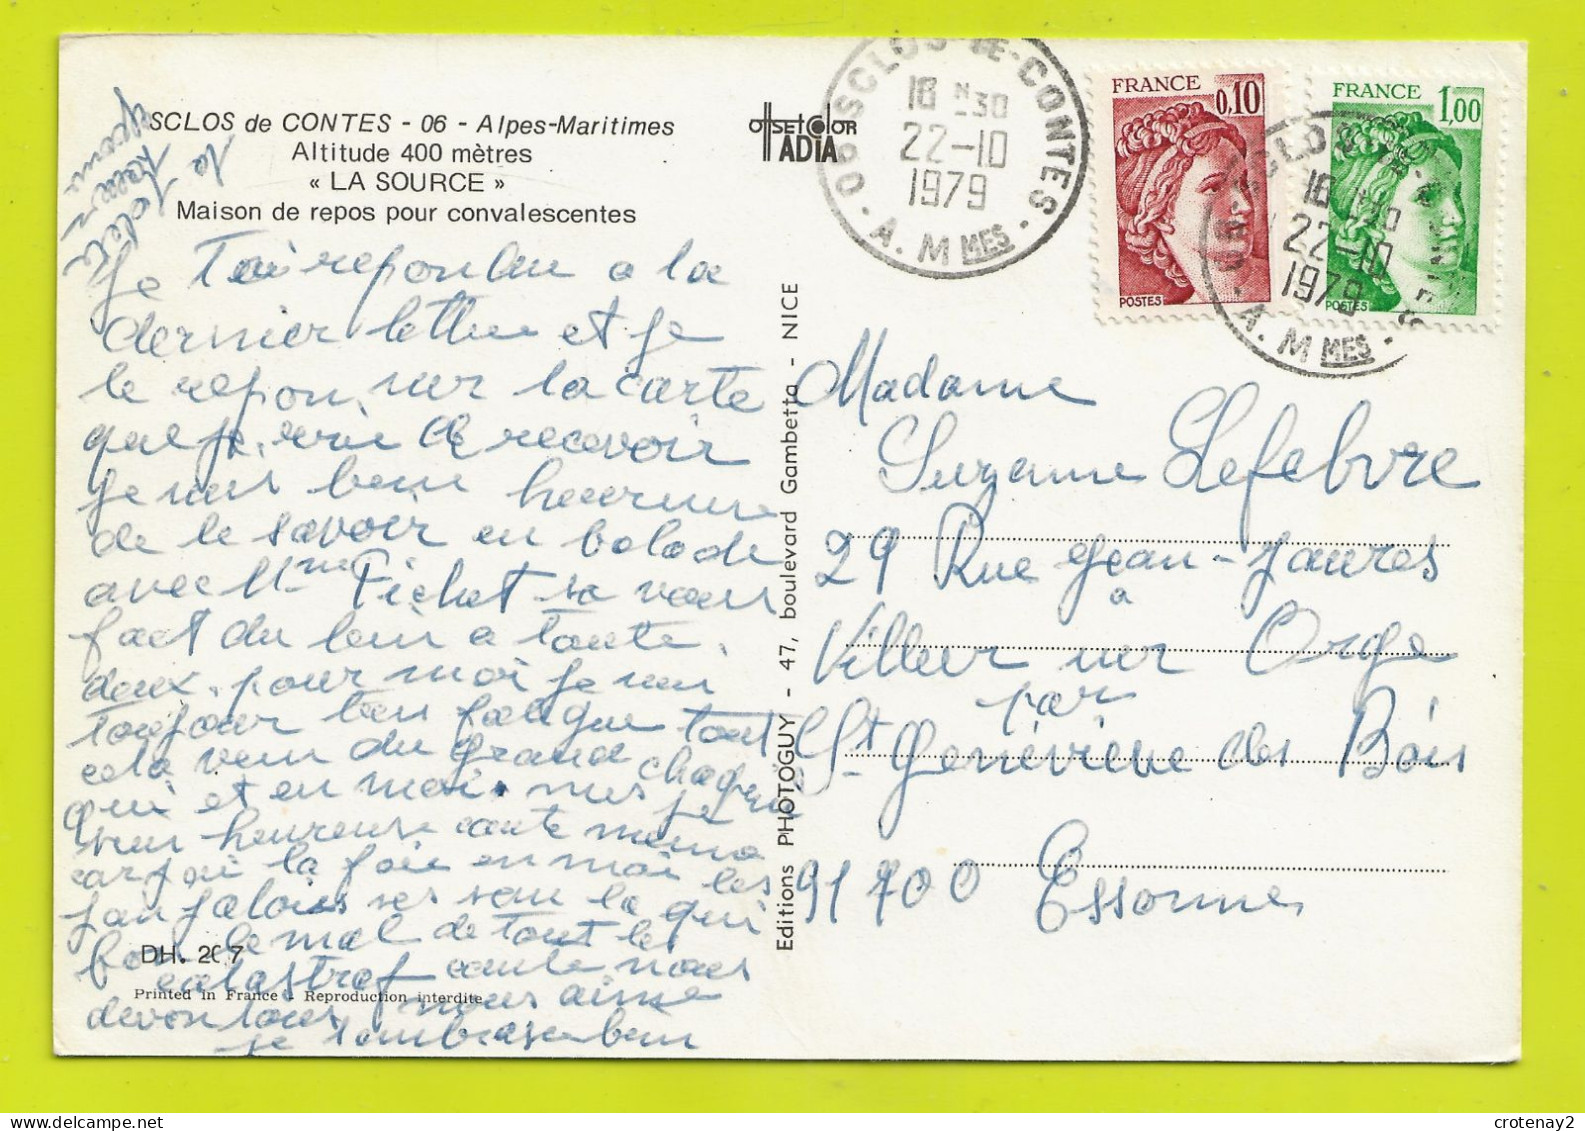 SCLOS de CONTES - 06 - Alpes-Maritimes
Altitude 400 mètres
« LA SOURCE »
Maison de repos pour convalescentes
OFFSET COLOR
ADIA
06 SCLOS-DE-CONTES
16 H 30
22-10
1979
A. MMES
FRANCE 0,10
POSTES
FRANCE 1,00
POSTES
16 H 30
22-10
1979
A. MMES
Je a la
dernier lettre et je
le repon sur la carte
que je recevoir
je suis bien heureuse
de le savoir en balade
avec Mme Pichet sa vous
fait du bien a toute
deux, pour moi je suis
toujour bien fatigue tout
cela vien du grand chagrin
qui et en moi. mes je
heureuse
car la foie en moi les
jalous le qui
le mal de tout les
catastrof nous
devon tous nous aime
je tambrase bien
Editions PHOTOGUY - 47, boulevard Gambetta - NICE
Madame
Suzanne Lefebvre
29 Rue Jean-Jaures
a
Villier sur Orge
par
St Geneviève des Bois
91700 Essonne
DH. 207
Printed in France - Reproduction interdite
crotenay2